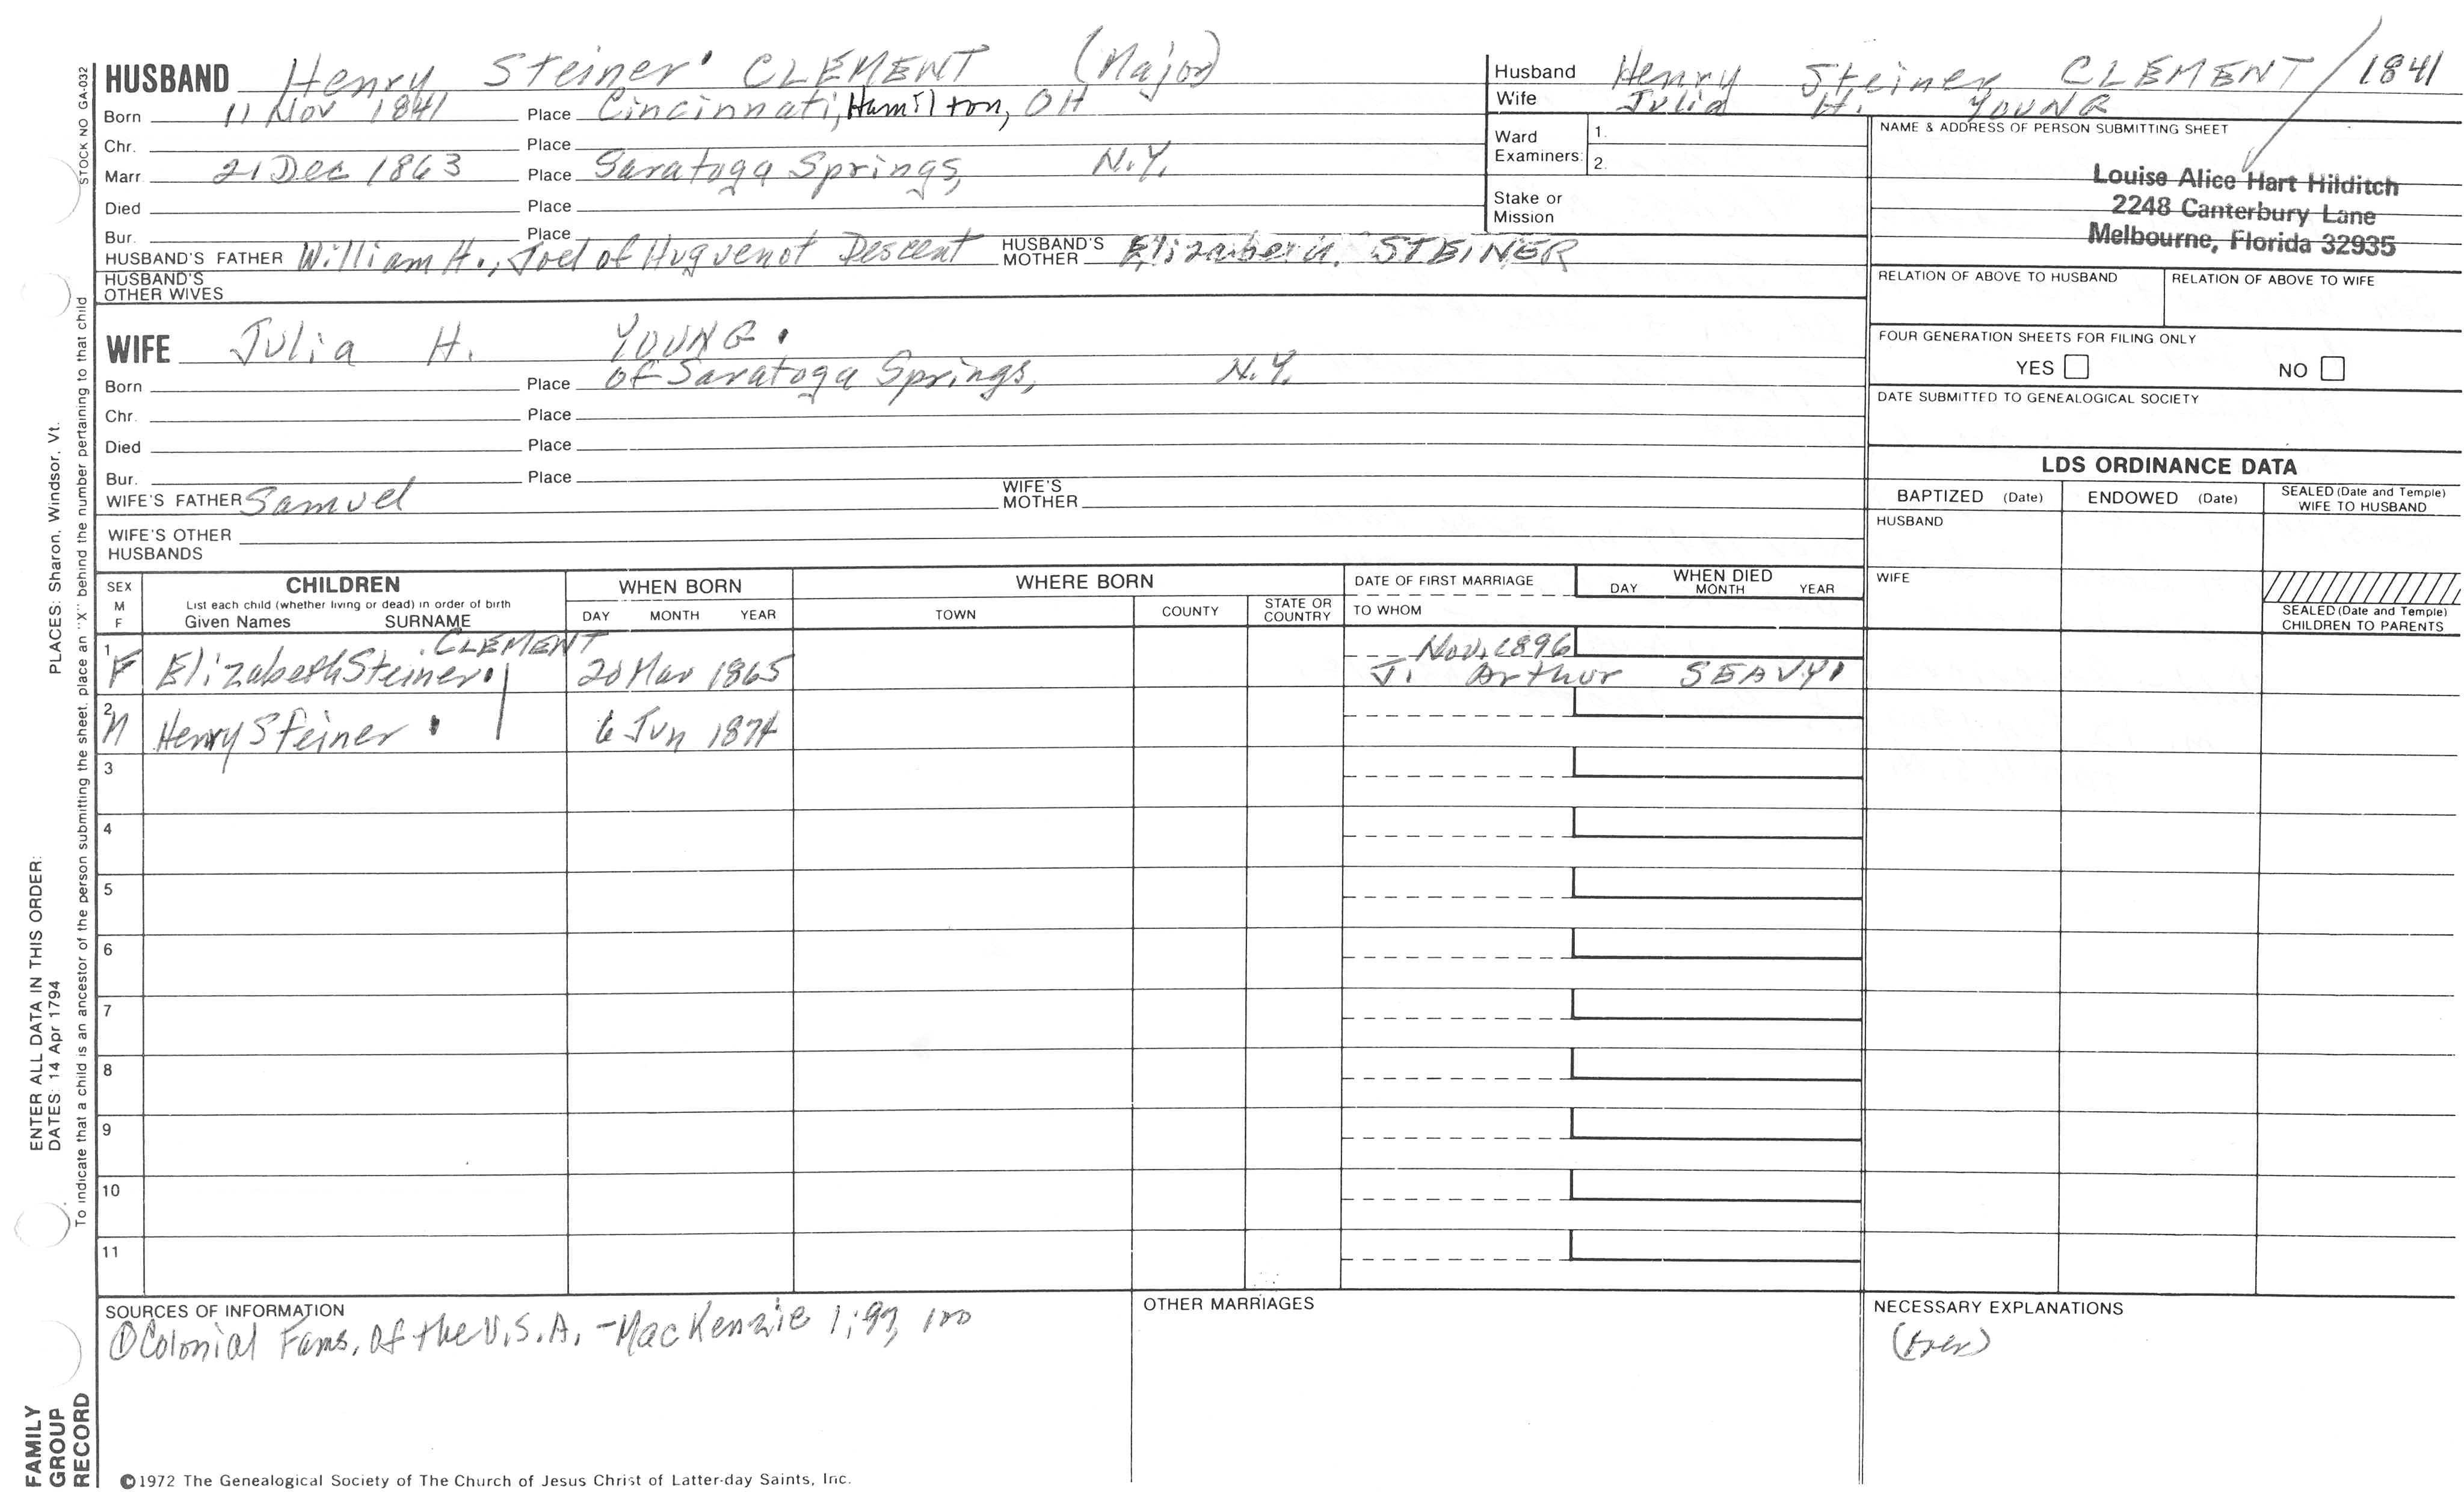 STOCK NO GA-032
HUSBAND Henry Steiner CLEMENT (Major)
Born 11 Nov 1841 Place Cincinnati, Hamilton, OH
Chr. Place
Marr. 21 Dec 1863 Place Saratoga Springs, N.Y.
Died Place
Bur. Place
HUSBAND'S FATHER William H., Joel of Huguenot Descent HUSBAND'S MOTHER STEINER
HUSBAND'S OTHER WIVES
WIFE Julia H. YOUNG
Born Place of Saratoga Springs, N.Y.
Chr. Place
Died Place
Bur. Place
WIFE'S FATHER Samuel WIFE'S MOTHER
WIFE'S OTHER HUSBANDS
Husband Henry Steiner CLEMENT / 1841
Wife Julia H. YOUNG
Ward Examiners: 1.
2.
Stake or Mission
NAME & ADDRESS OF PERSON SUBMITTING SHEET
Louise Alice Hart Hilditch
2248 Canterbury Lane
Melbourne, Florida 32935
RELATION OF ABOVE TO HUSBAND RELATION OF ABOVE TO WIFE
FOUR GENERATION SHEETS FOR FILING ONLY
YES NO
DATE SUBMITTED TO GENEALOGICAL SOCIETY
LDS ORDINANCE DATA
BAPTIZED (Date) ENDOWED (Date) SEALED (Date and Temple) WIFE TO HUSBAND
HUSBAND
WIFE
SEALED (Date and Temple) CHILDREN TO PARENTS
SEX M F
CHILDREN
List each child (whether living or dead) in order of birth
Given Names SURNAME
WHEN BORN
DAY MONTH YEAR
WHERE BORN
TOWN COUNTY STATE OR COUNTRY
DATE OF FIRST MARRIAGE
TO WHOM
WHEN DIED
DAY MONTH YEAR
CLEMENT Nov. 1896
1 F Elizabeth Steiner 20 Mar 1865 J. Arthur SEAVY
2 M Henry Steiner 6 Jun 1874
3
4
5
6
7
8
9
10
11
SOURCES OF INFORMATION
① Colonial Fams. of the U.S.A. - MacKenzie 1: 99, 100
OTHER MARRIAGES
NECESSARY EXPLANATIONS
(over)
©1972 The Genealogical Society of The Church of Jesus Christ of Latter-day Saints, Inc.
FAMILY
GROUP
RECORD
ENTER ALL DATA IN THIS ORDER:
DATES: 14 Apr 1794 PLACES: Sharon, Windsor, Vt.
To indicate that a child is an ancestor of the person submitting the sheet, place an "X" behind the number pertaining to that child